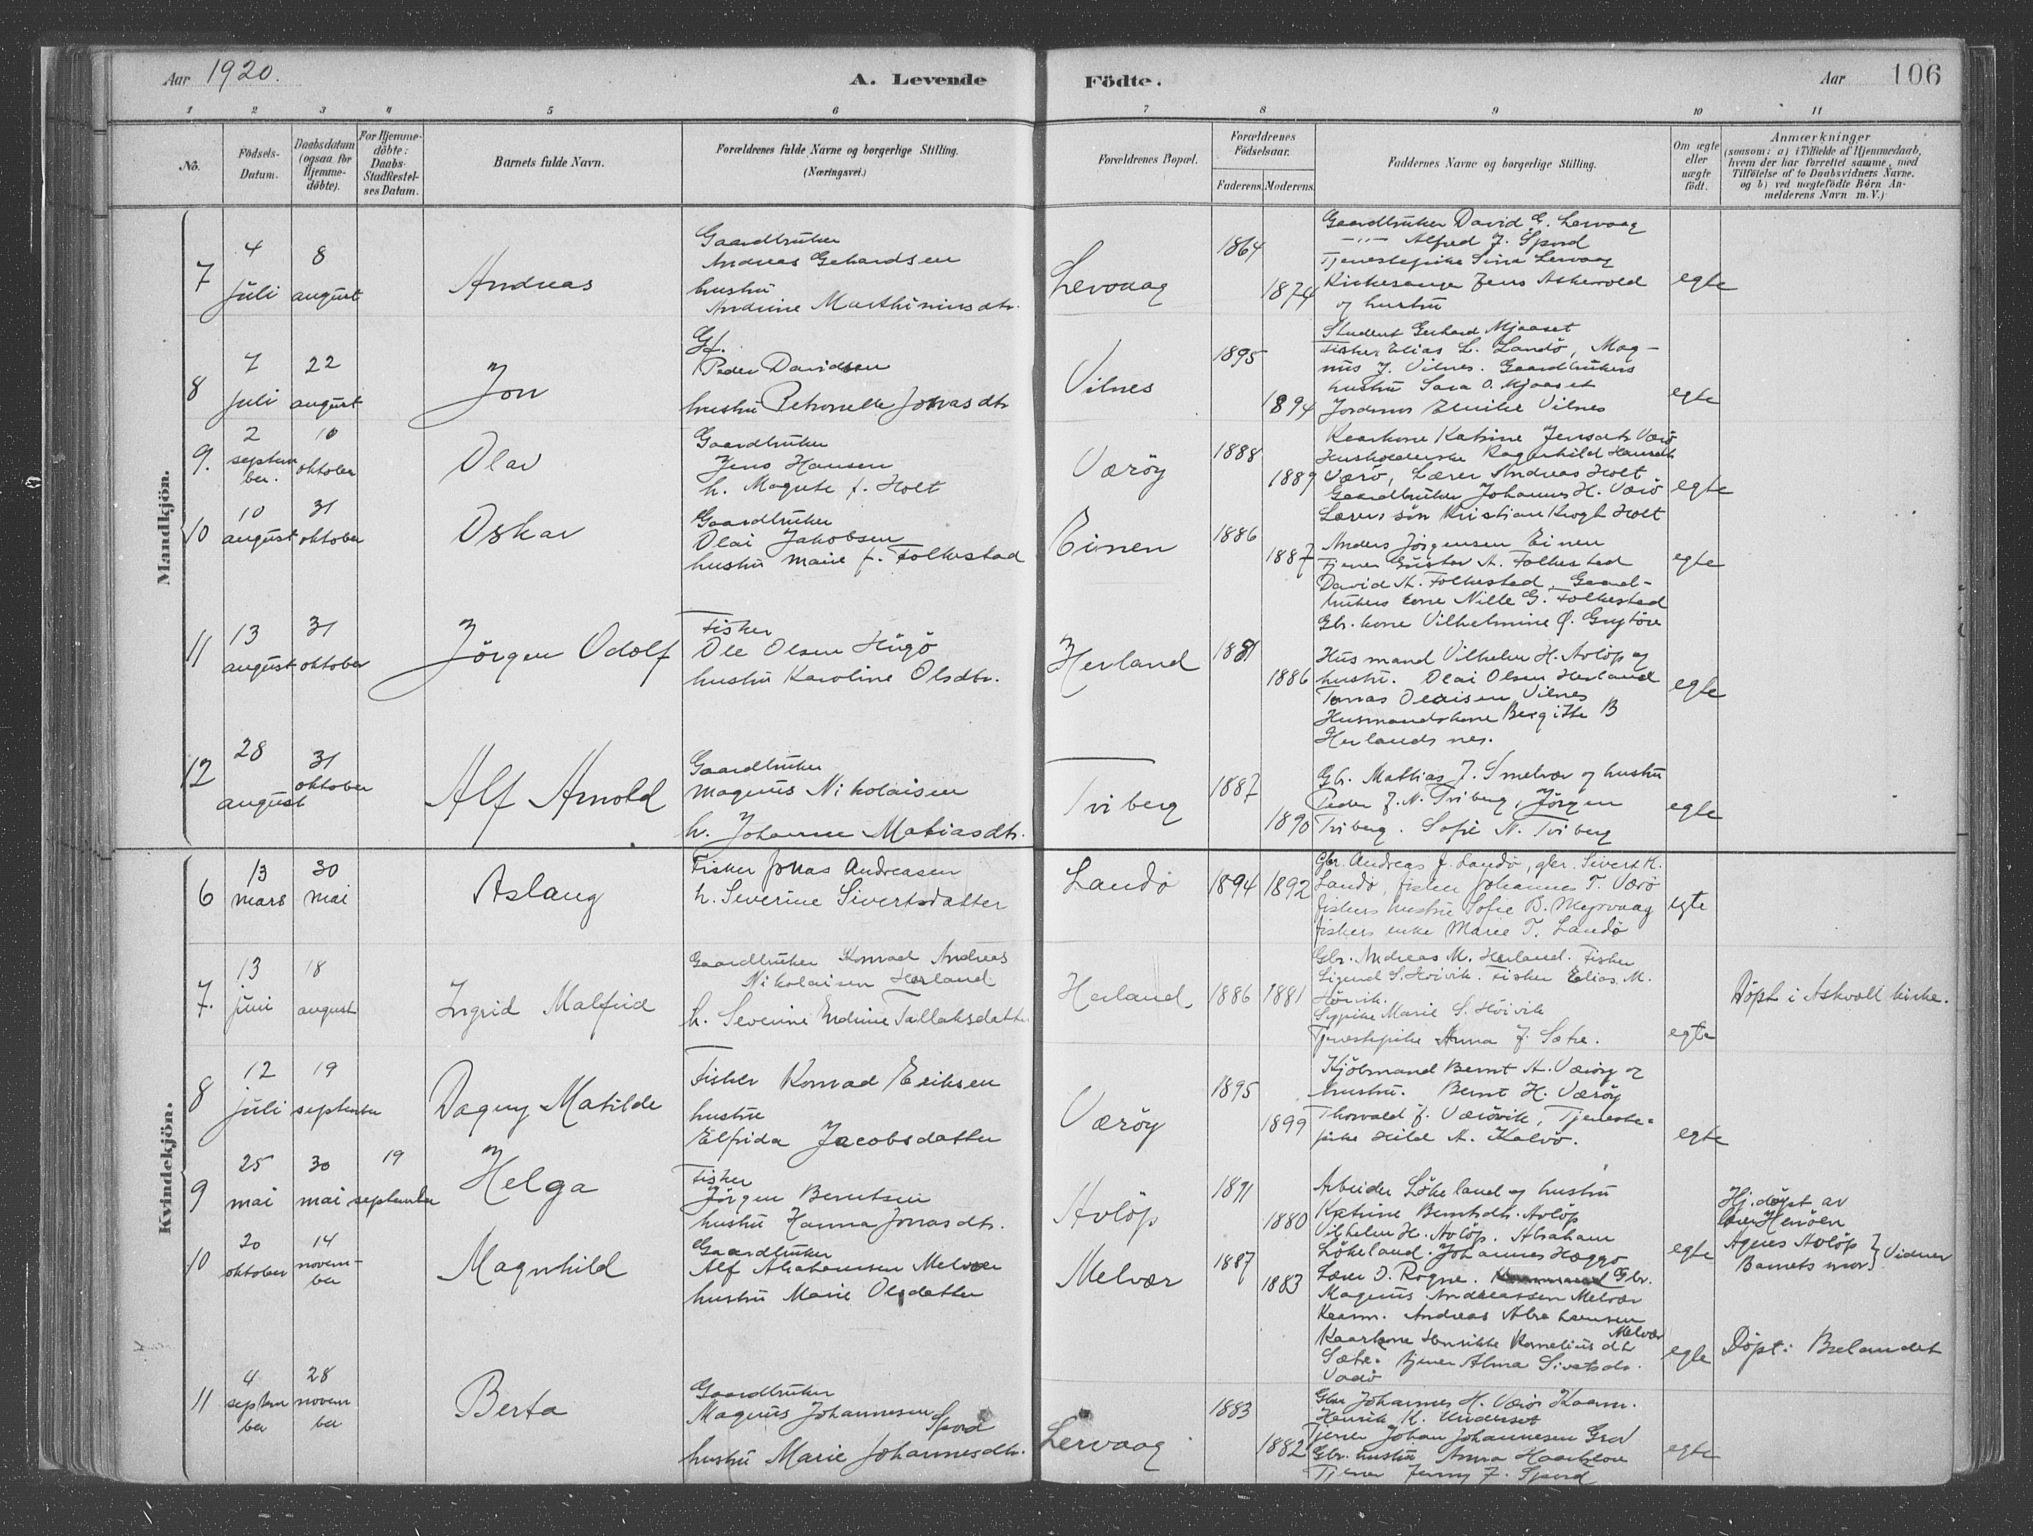 Aar 1920.
A. Levende Födte.
Aar 106
1 2 3 4 5 6 7 8 9 10 11
No.
Födsels-
Datum.
Daabsdatum
(ogsaa for
Hjemme-
döbte).
For Hjemme-
döbte:
Daabs-
Stadfæstel-
ses Datum.
Barnets fulde Navn.
Forældrenes fulde Navne og borgerlige Stilling.
(Næringsvei.)
Forældrenes Bopæl.
Forældrenes
Födselsaar.
Faderens. Moderens.
Faddernes Navne og borgerlige Stilling.
Om ægte
eller
uægte
födt.
Anmærkninger
(saasom: a) i Tilfælde af Hjemmedaab,
hvem der har forrettet samme, med
Tilföielse af to Daabsvidners Navne.
og b) ved uægtefödte Börn An-
melderens Navn m. V.)
Mandkjön.
7
4
juli
8
august
Andreas
Gaardbruker
Andreas Gehardsen
hustru
Andrine Marthiniusdtr.
Levaag
1864
1874
Gaardbruker David G. Lervaag
—"— Alfred J. Spord
Tjenestepike Sina Lervaag
Kirkesanger Jens Askevold
og hustru
egte
8
7
juli
22
august
Jon
Gf.
Peder Davidsen
hustru Petronelle Jonasdtr
Vilnes
1895
1894
Student Gerhard Mjaaset
Fisker Elias L. Landö, Mag-
nus J. Vilnes. Gaardbrukers
hustru Sara O. Mjaaset
Jordmor Emilie Vilnes
egte
9.
2
septem
ber.
10
oktober
Olav
Gaardbruker
Jens Hansen
h. Magnhe f. Holt
Væröy
1888
1889
Kaarkone Katrine Jensdtr Værö
Husholderske Ragnhild Hansdtr
Værö, Lærer Andreas Holt
Gaardbruker Johannes H. Værö
Lærers sön Kristian Krogh Holt
egte
10
10
august
31
oktober
Oskar
Gaardbruker
Olai Jakobsen
hustru Marie f. Folkestad
Einen
1886
1887
Anders Jörgensen Einen
Tjener Gustav A. Folkestad
David A. Folkestad, Gaard-
brukers kone Nille G. Folkestad
Gbr. kone Vilhelmine Ø. Grytöra
egte
11
13
august
31
oktober
Jörgen Odolf
Fisker
Ole Olsen Hügö
hustru Karoline Olsdtr.
Herland
1881
1886
Husmand Vilhelm H. Avlöp og
hustru. Olai Olsen Herland
Tomas Olaisen Vilnes
Husmandskone Bergitte B
Herlandsnes.
egte
12
28
august
31
oktober
Alf Arnold
Gaardbruker
Magnus Nikolaisen
h. Johanne Matiasdtr.
Tviberg
1887
1890
Gbr. Mathias J. Smelvær og hustru
Peder J. N. Tviberg, Jörgen
Tviberg. Sofie N. Tviberg
egte
Kvindekjön.
6
13
mars
30
mai
Aslaug
Fisker Jonas Andreasen
h. Severine Sivertsdatter
Landö
1894 1892
Gbr. Andreas J. Landö, gbr. Sivert K.
Landö, fisker Johannes T. Værö
fiskers hustru Sofie B. Myrvaag
fiskers enke Marie T. Landö
egte
7.
13
juni
18
august
Ingrid Malfrid
Gaardbruker Konrad Andreas
Nikolaisen Herland
h. Severine Endrine Tallaksdatter
Herland
1886 1881
Gbr. Andreas M. Herland. Fisker
Sigurd S. Höivik. Fisker Elias M.
Höivik.
Sypike Marie S. Höivik
Tjenestepike Anna J. Sætre.
egte
Döpt i Askvoll kirke.
8
12
juli
19
september
Dagny Matilde
Fisker Konrad Eriksen
hustru
Elfrida Jacobsdatter
Væröy
1895
1899
Kjöbmand Bernt A. Væröy og
hustru. Bernt H. Væröy
Thorvald J. Værövik, Tjeneste-
pike Hild A. Kalvö.
egte
9
25
mai
30
mai
19
september
Helga
Fisker
Jörgen Berntsen
hustru Hanna Jonasdtr.
Avlöp
1871
1880
Arbeider Lökeland og hustru
Katrine Berntsdtr. Avlöp
Vilhelm H. Avlöp. Abraham
Lökeland. Johannes Hæggö
egte
Hj.döpt av
lærer Heröen
Agnes Avlöp
Barnets mor } Vidner
10
20
oktober
14
novem-
ber
Magnhild
Gaardbruker
Alf Abrahamsen Melvær
hustru Marie Olsdatter
Melvær
1887
1883
Lærer D. Rogne. Gbr.
Magnus Andreassen Melvær
Kaarm. Andreas Abrahamsen
Melvær
Kaarkone Henrikke Korneliusdtr
Sætre. tjener Alma Sivertsdtr.
Vadö
egte
Döpt i Bulandet
11
4
septem
ber
28
novem
ber
Berta
Gaardbruker
Magnus Johannesen
Spord
hustru Marie Johannesdtr.
Lervaag
1883
1882
Gbr Johannes H. Værö Kaarm.
Henrik K. Underset
Tjener Johan Johannesen Grov
Gbr. hustru Anna Haarklou
Tjener Jenny J. Spord
egte